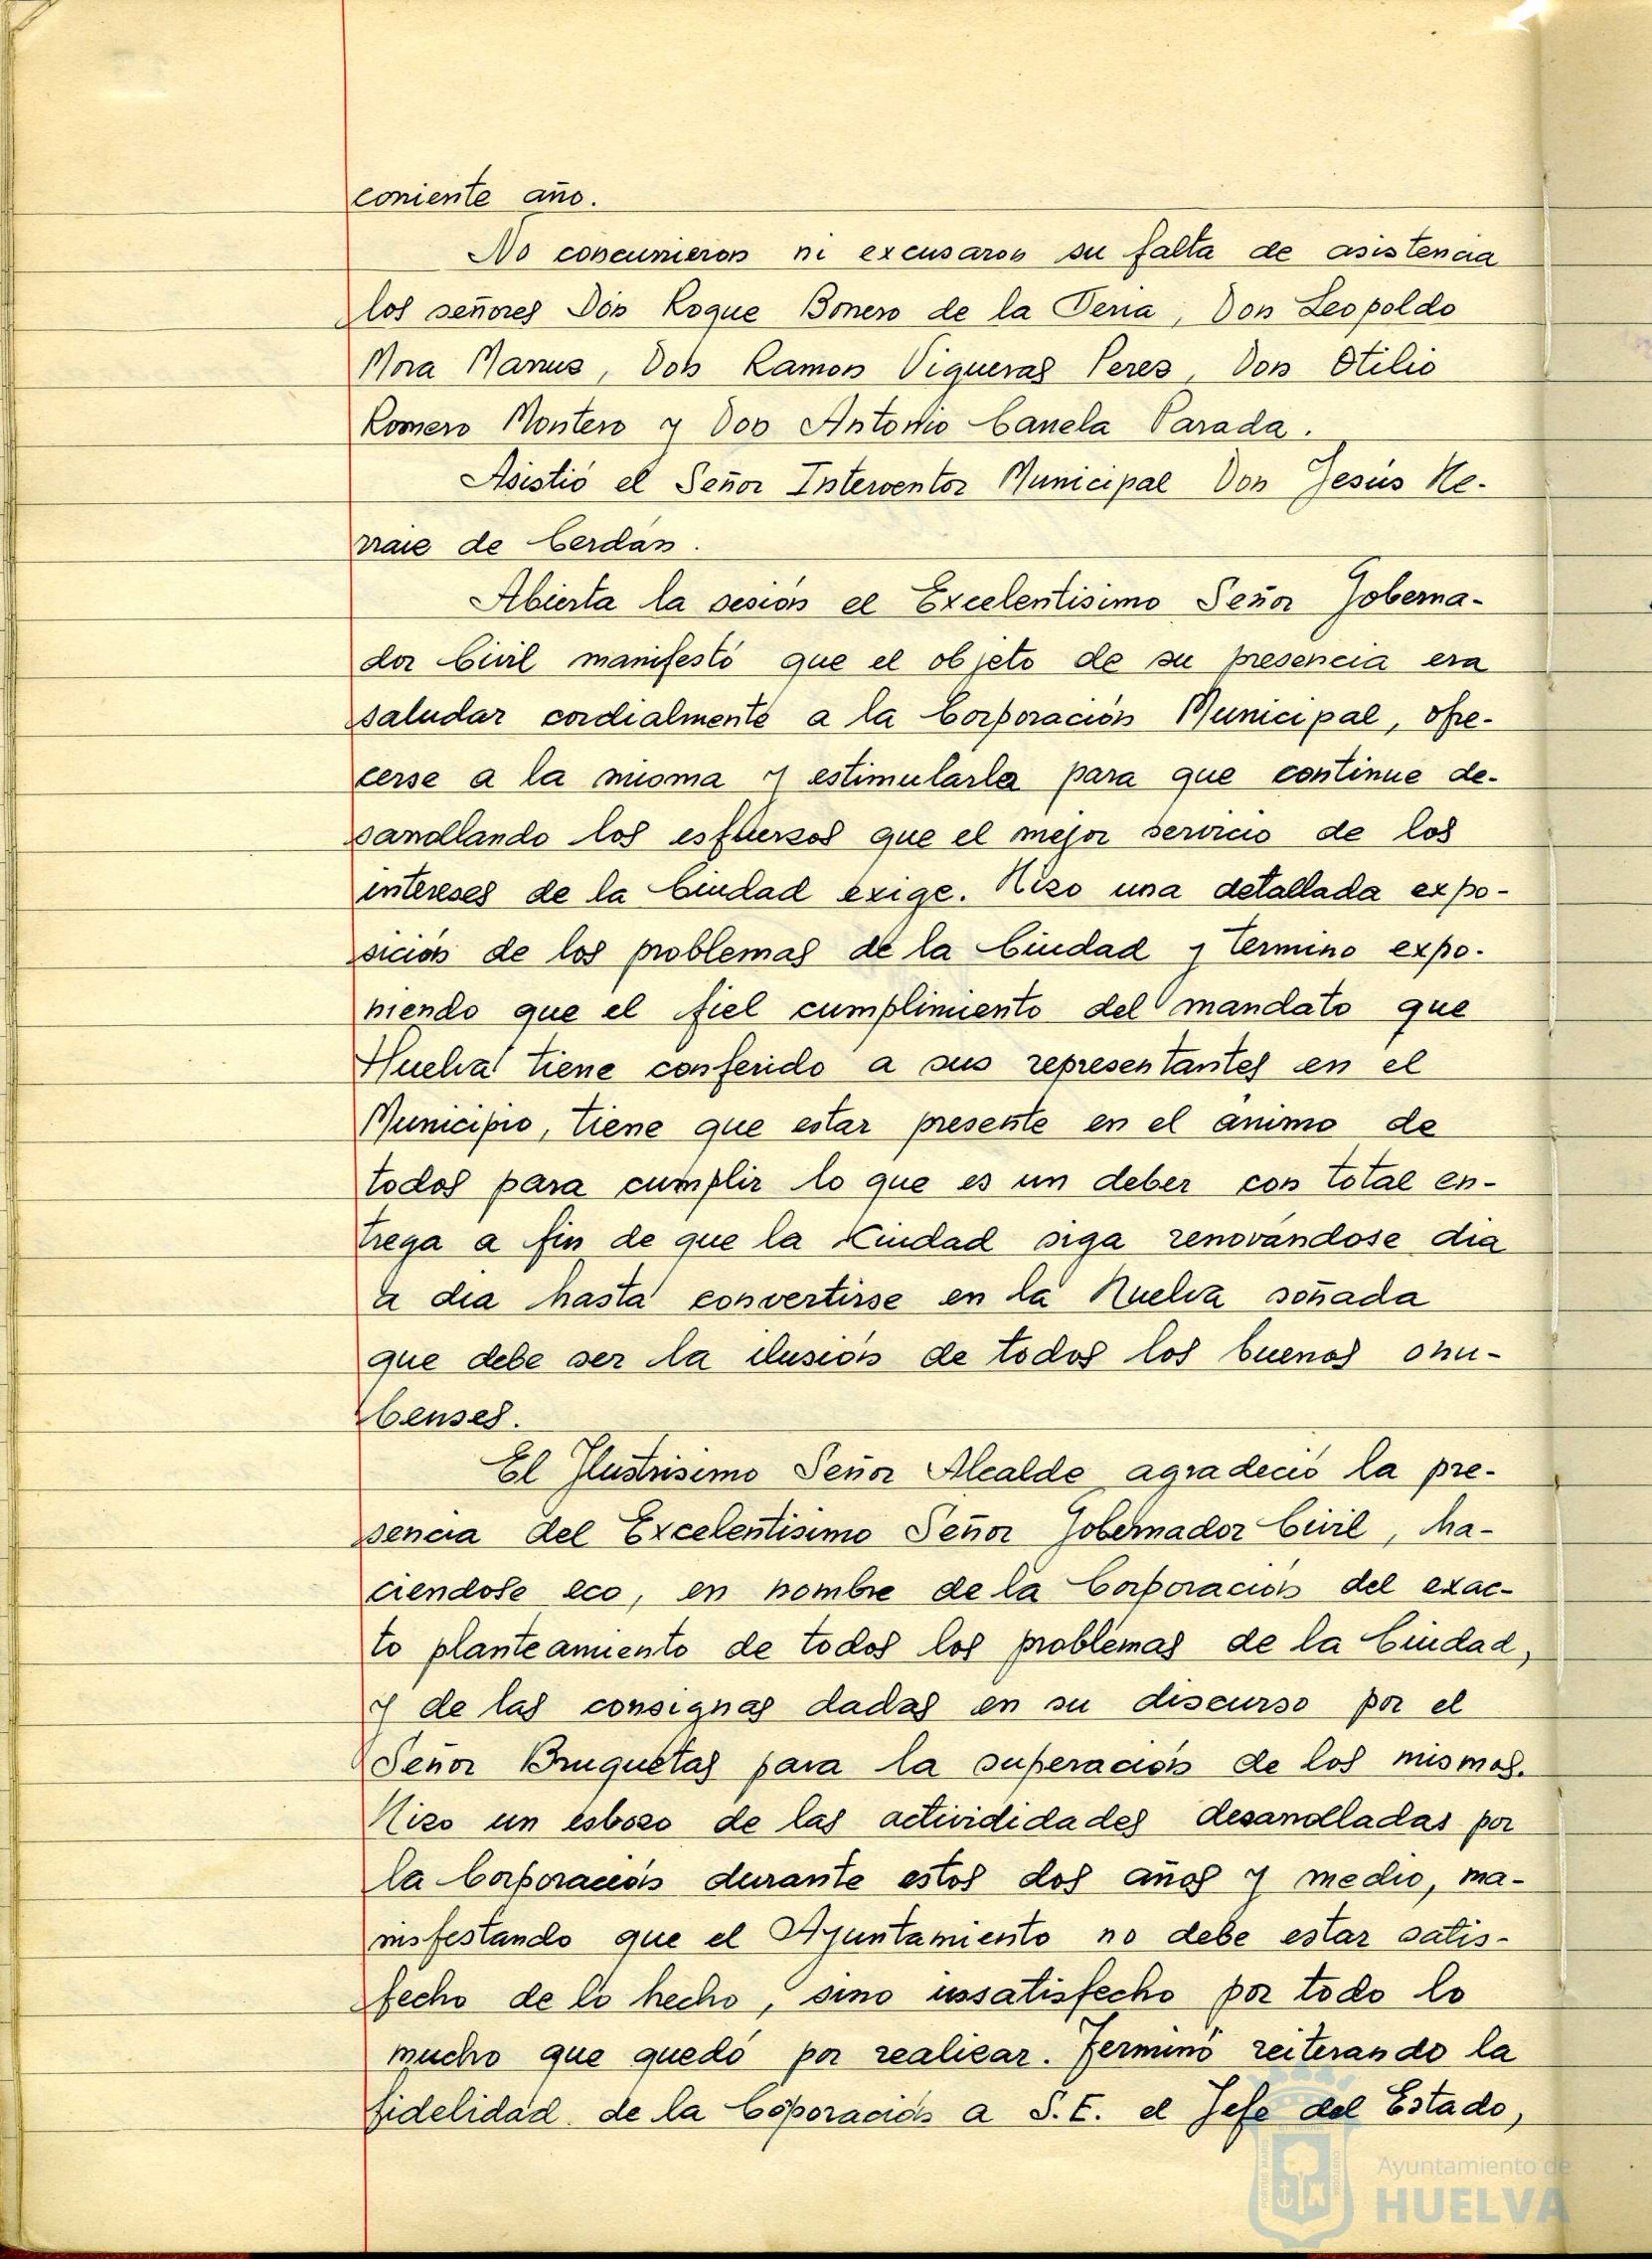 corriente año.
No concurrieron ni excusaron su falta de asistencia
los señores Don Roque Borrero de la Feria, Don Leopoldo
Mora Marrus, Don Ramon Vigueras Peres, Don Otilio
Romero Montero y Don Antonio Canela Parada.
Asistió el Señor Interventor Municipal Don Jesús He-
rraiz de Cerdán.
Abierta la sesión el Excelentisimo Señor Goberna-
dor Civil manifestó que el objeto de su presencia era
saludar cordialmente a la Corporación Municipal, ofre-
cerse a la misma y estimularla para que continue de-
sarrollando los esfuersos que el mejor servicio de los
intereses de la Ciudad exige. Hizo una detallada expo-
sición de los problemas de la Ciudad y termino expo-
niendo que el fiel cumplimiento del mandato que
Huelva tiene conferido a sus representantes en el
Municipio, tiene que estar presente en el animo de
todos para cumplir lo que es un deber con total en-
trega a fin de que la Ciudad siga renovándose dia
a dia hasta convertirse en la Huelva soñada
que debe ser la ilusión de todos los buenos onu-
benses.
El Ilustrisimo Señor Alcalde agradeció la pre-
sencia del Excelentisimo Señor Gobernador Civil, ha-
ciendose eco, en nombre de la Corporación del exac-
to planteamiento de todos los problemas de la Ciudad,
y de las consignas dadas en su discurso por el
Señor Bruquetas para la superación de los mismos.
Hizo un esbozo de las activididades desarrolladas por
la Corporación durante estos dos años y medio, ma-
nisfestando que el Ayuntamiento no debe estar satis-
fecho de lo hecho, sino insatisfecho por todo lo
mucho que quedó por realizar. Terminó reiterando la
fidelidad de la Coporación a S.E. el Jefe del Estado,
Ayuntamiento de
HUELVA